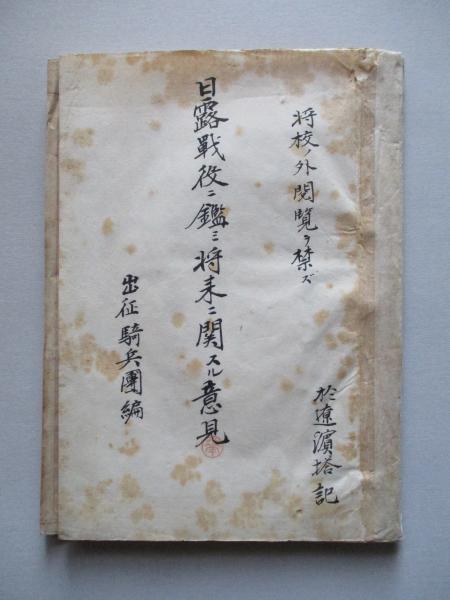 将校ノ外閲覧ヲ禁ズ
於遼濱塔記
日露戰役ニ鑑ミ将来ニ関スル意見
出征騎兵團編